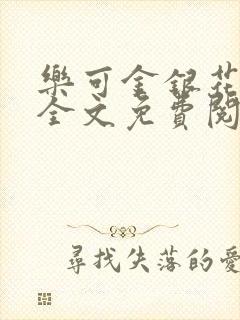 樂可金銀花
全文免費閱
尋找失落的愛